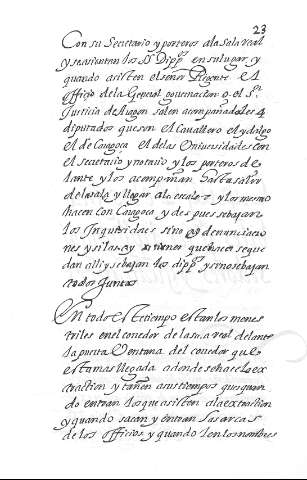 23
Con su Secretario y porteros a la sala real
y se asientan los SS Dipp.s en su lugar, y
quando asisten el señor Regente el
officio de la General gouernacion o el S.r
Justicia de Aragon salen acompañadoles 4
diputados que son el Cauallero el ydalgo
el de Caragoça el de las Vniuersidades con
el secretario y notario y los porteros de
lante y los acompañan hasta salir
de la sala y llegar a la escalera y lo mesmo
hacen con Caragoça y despues se bajan
los Inquiridores sino ay denunciacio
nes y si las ay tienen que hacer se que
dan alli y se bajan los dipp.s y sino se bajan
todos Juntos
En todo este tiempo estan los menes
triles en el coredor de la sala real delante
la puerta Ventana del coredor que es
esta mas llegada a donde se hace la ex
traction y tañen a sus tiempos que quan
do entran los que asisten a la extraction
y quando sacan y entran las arcas
de los officios, y quando leen los nombres